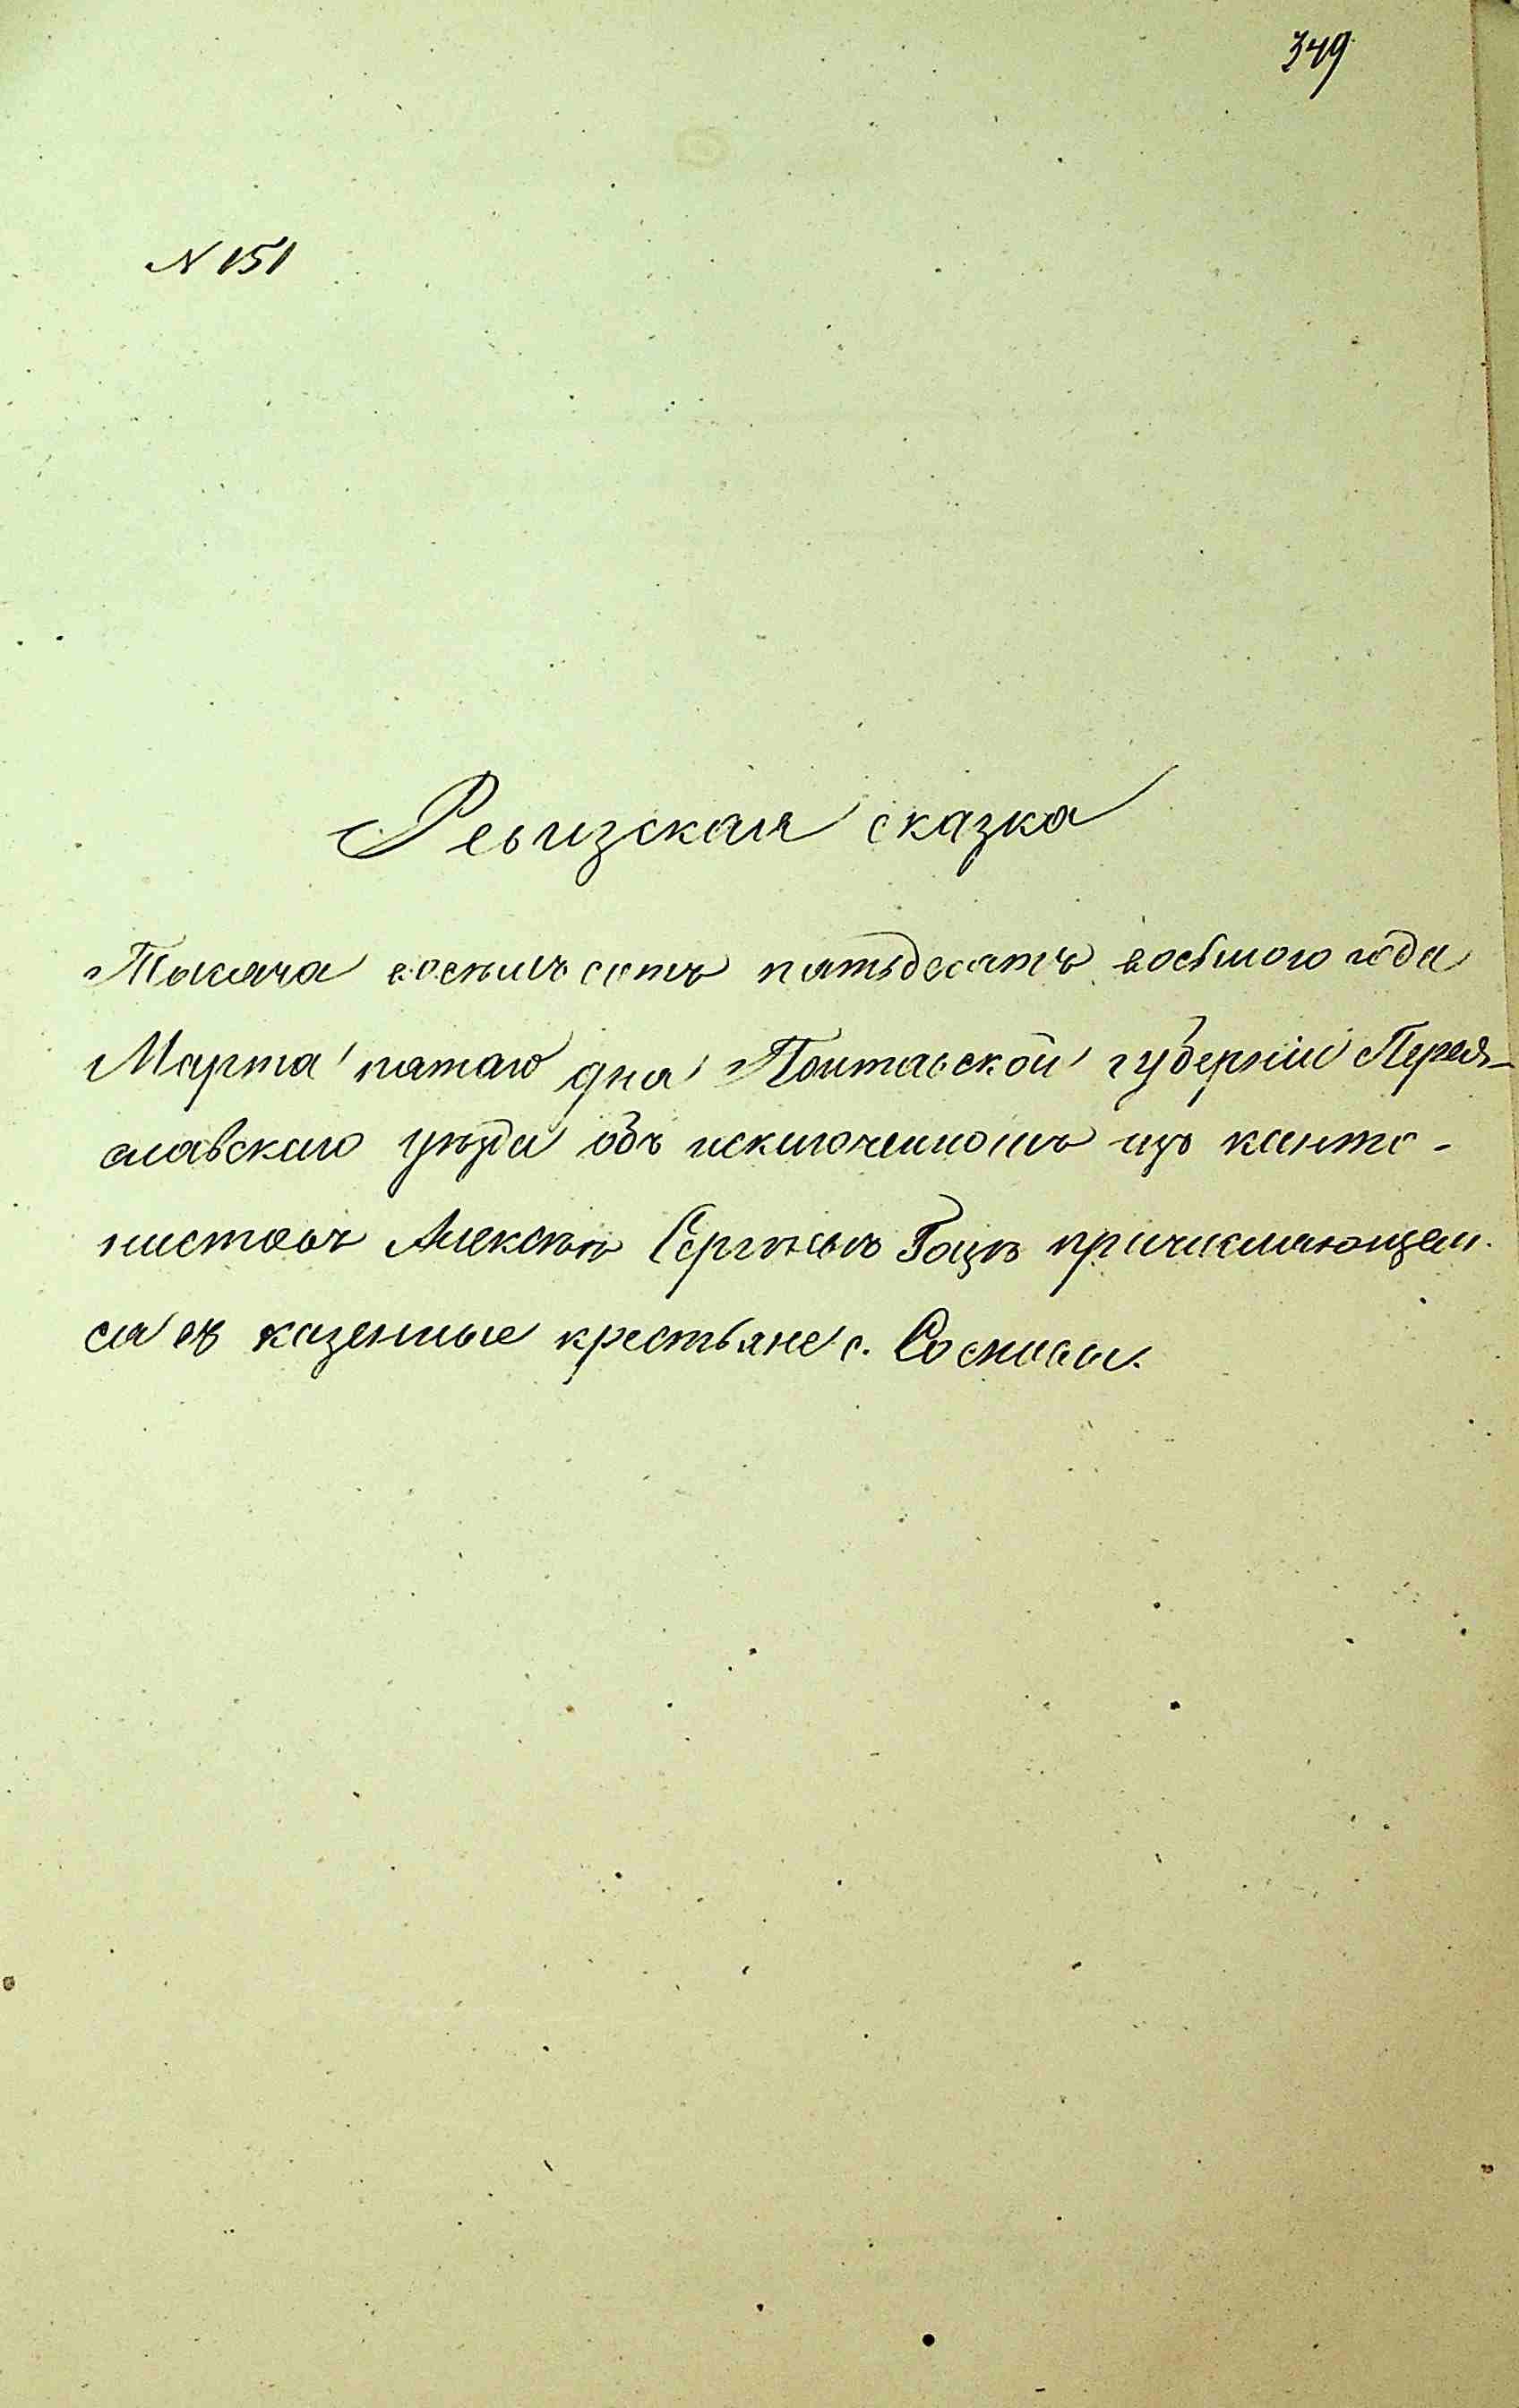 349
N 151
Ревизская сказка
Тысяча восемь сотъ пятьдесятъ восьмого года
Марта пятаго дня Полтавской губерніи Перея-
славского уѣзда объ исключенномъ изъ канто-
нистовъ Алексѣѣ Сергѣевѣ причисляющем-
ся въ казенные крестьяне с. Сосновы.